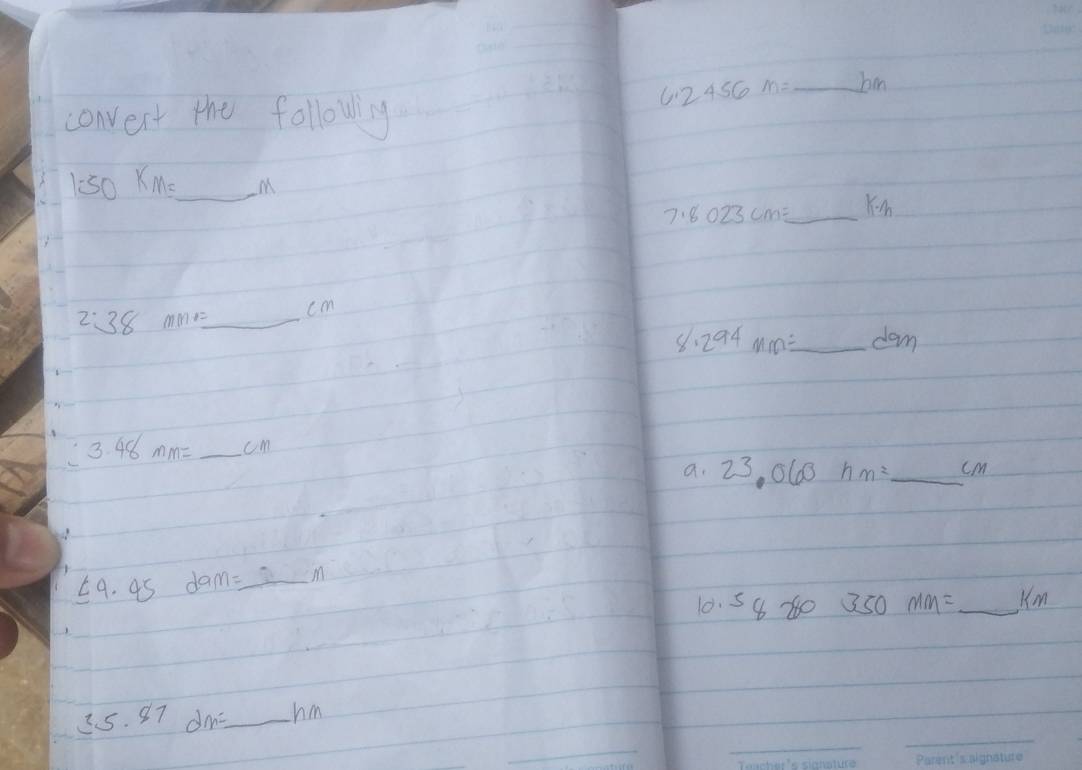 convert the following
1.50 Km=____M
2.38 mm=____cm
3.48 mm=___cm
4. 45 dam=____m
5. 87 dm=____hm
No:
Date:
6.2456 m=____hm
7.8023cm=____Km
8.294 mm=____dam
9. 23.060 hm=____cm
10.58 780 350 MM=___Km
Teacher's signature
Parent's signature